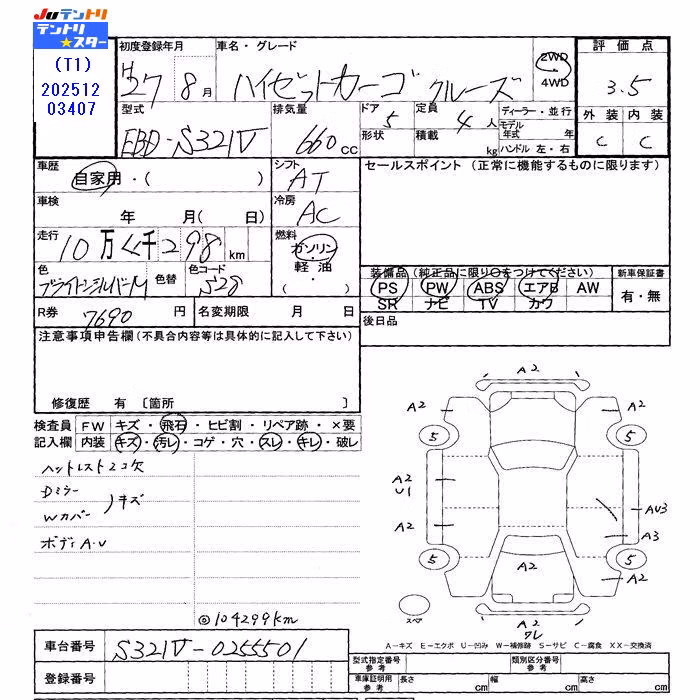 Juテントリ
テントリ
★スター
(T1)
202512
03407
初度登録年月
H27 8月
車名・グレード
ハイゼットカーゴ クルーズ
2WD
・
4WD
評価点
3.5
外装 内装
C C
型式
EBD-S321V
排気量
660cc
ドア
5
形状
定員
4人
積載
kg
ディーラー・並行
モデル年式 年
ハンドル 左・右
車歴
自家用・( )
シフト
AT
セールスポイント (正常に機能するものに限ります)
車検
年 月( 日)
冷房
AC
走行
10万4千298km
燃料
ガソリン
軽油
・
( )
色
ブライトシルバーM
色替
色コード
S28
装備品(純正品に限り○をつけてください)
PS PW ABS エアB AW
SR ナビ TV カワ
新車保証書
有・無
R券
7690円
名変期限 月 日
後日品
注意事項申告欄(不具合内容等は具体的に記入して下さい)
修復歴 有 〔箇所 〕
検査員
記入欄
FW キズ・飛石・ヒビ割・リペア跡・×要
内装 キズ・汚レ・コゲ・穴・スレ・キレ・破レ
ヘットレスト2コ欠
Dミラー
Wカバー
キズ
ボディA・U
◎104299km
A2
A2
A2
5
5
A2
U1
A2
AU3
A3
5
5
A2
A2
A2
ワレ
スペア
A-キズ E-エクボ U-凹み W-補修跡 S-サビ C-腐食 XX-交換済
車台番号
S321V-0255501
登録番号
型式指定番号
参考
類別区分番号
参考
車庫証明用
参考
長さ cm
幅 cm
高さ cm